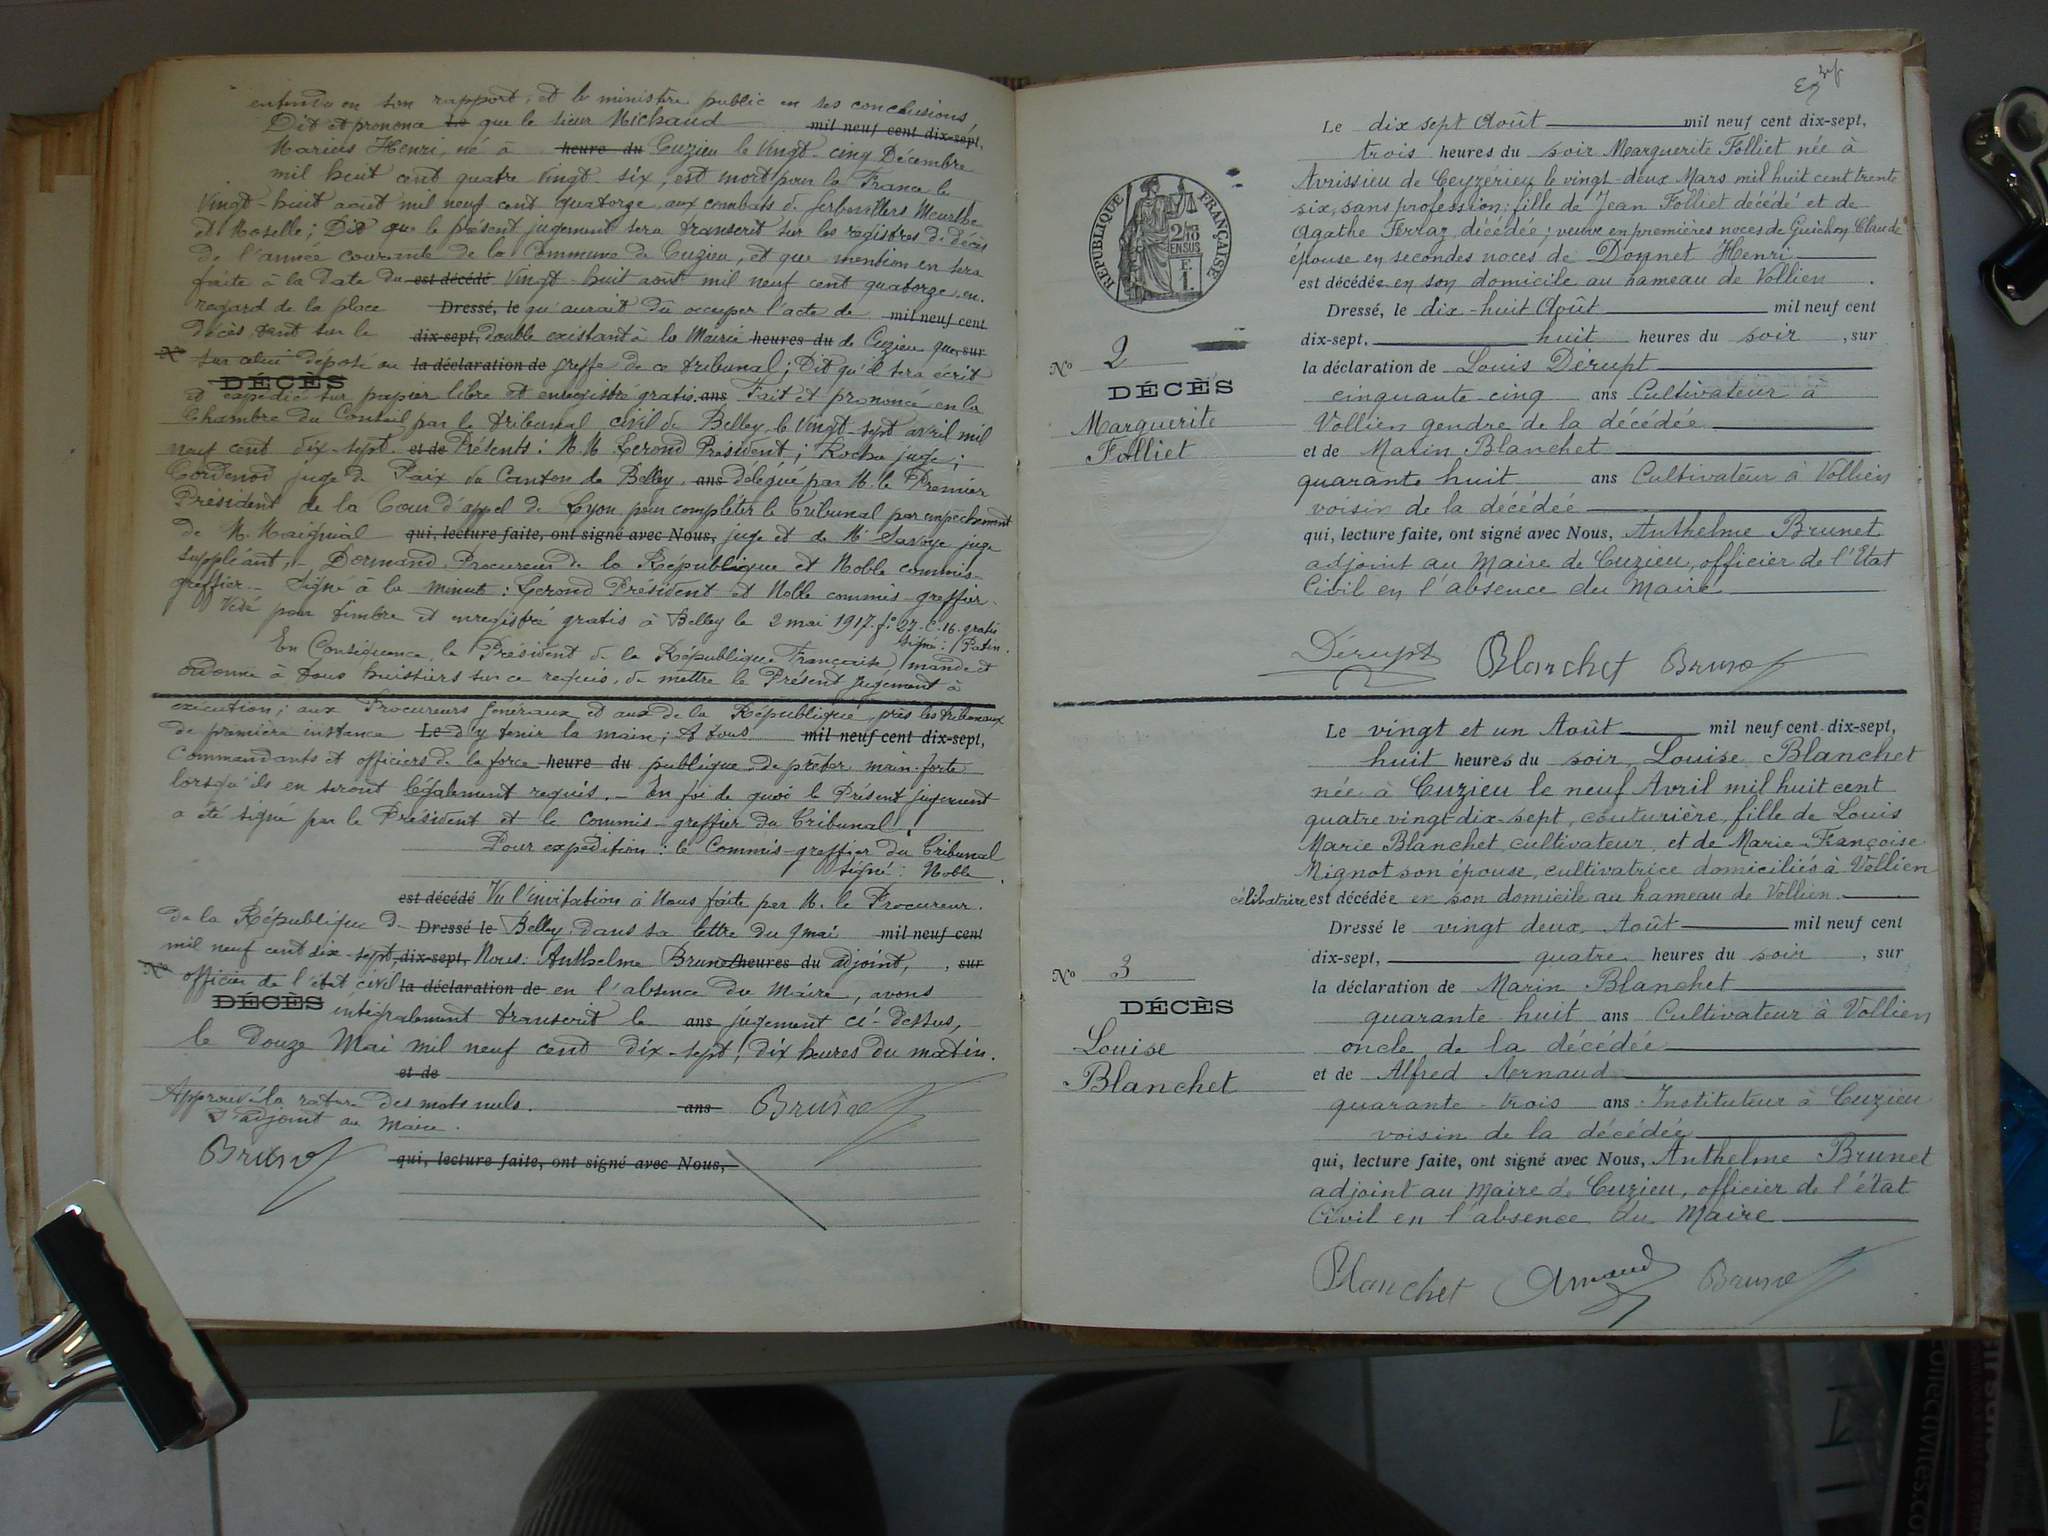 entendu en son rapport, et le ministère public en ses conclusions
Dit et prononce Le que le sieur Michaud mil neuf cent dix-sept,
Marius Henri, né à heure du Cuzieu le vingt-cinq Décembre
mil huit cent quatre vingt-six, est mort pour la France le
vingt-huit août mil neuf cent quatorze aux combats de Gerbevillers Meurthe
et Moselle; Dit que le présent jugement sera transcrit sur les registres de décès
de l'année courante de la Commune de Cuzieu, et que mention en sera
faite à la date du est décédé vingt-huit août mil neuf cent quatorze en
regard de la place Dressé, le qu'aurait dû occuper l'acte de mil neuf cent
décès tant sur le dix-sept, double existant à la Mairie heures du de Cuzieu que, sur
No sur celui déposé au la déclaration de greffe de ce tribunal; Dit qu'il sera écrit
DÉCÈS
et expédié sur papier libre et enregistré gratis. ans Fait et prononcé en la
Chambre du Conseil par le tribunal civil de Belley, le vingt-sept avril mil
neuf cent dix-sept. et de Présents: M. M. Gerond Président; Roche juge;
Cordenod juge de Paix du Canton de Belley, ans délégué par M. le Premier
Président de la Cour d'appel de Lyon pour compléter le Tribunal par empêchement
de M. qui, lecture faite, ont signé avec Nous, juge et de Mr Savoye juge
suppléant, Dormand, Procureur de la République et Noble commis-
greffier. Signé à la minute: Gerond Président et Noble commis-greffier.
Visé pour timbre et enregistré gratis à Belley le 2 mai 1917. fo 27. C. 16. gratis
signé: Patin.
En Conséquence, le Président de la République Française, mande et
ordonne à tous huissiers sur ce requis, de mettre le Présent jugement à
exécution; aux Procureurs généraux et aux de la République, près les tribunaux
de première instance Le d'y tenir la main; A tous mil neuf cent dix-sept,
Commandants et officiers de la force heure du publique, de prêter main-forte
lorsqu'ils en seront légalement requis. - En foi de quoi le Présent jugement
a été signé par le Président et le commis-greffier du Tribunal.
Pour expédition: le Commis-greffier du Tribunal
signé: Noble.
est décédé Vu l'invitation à Nous faite par M. le Procureur
de la République de Dressé le Belley, dans sa lettre du 9 mai mil neuf cent
mil neuf cent dix-sept, dix-sept, Nous: Anthelme Brunet heures du adjoint, , sur
No officier de l'état civil la déclaration de en l'absence du Maire, avons
DÉCÈS intégralement transcrit le ans jugement ci-dessus,
le douze Mai mil neuf cent dix-sept, dix heures du matin.
et de
Approuvé la rature des mots nuls. ans Brunet
L'adjoint au Maire.
Brunet qui, lecture faite, ont signé avec Nous,
RÉPUBLIQUE FRANÇAISE
2/10 EN SUS
E. 1.
Le dix sept Août mil neuf cent dix-sept,
trois heures du soir Marguerite Folliet née à
Avrissieu de Ceyzérieu le vingt-deux Mars mil huit cent trente
six, sans profession; fille de Jean Folliet décédé et de
Agathe Ferraz décédée; veuve en premières noces de Guichon Claude
épouse en secondes noces de Donnet Henri
est décédée en son domicile au hameau de Vollien.
Dressé, le dix-huit Août mil neuf cent
dix-sept, huit heures du soir, sur
No 2
la déclaration de Louis Dérupt
DÉCÈS
cinquante-cinq ans Cultivateur à
Marguerite
Vollien gendre de la décédée
Folliet
et de Marin Blanchet
quarante huit ans Cultivateur à Vollien
voisin de la décédée
qui, lecture faite, ont signé avec Nous, Anthelme Brunet
adjoint au Maire de Cuzieu, officier de l'Etat
Civil en l'absence du Maire
Dérupt Blanchet Brunet
Le vingt et un Août mil neuf cent dix-sept,
huit heures du soir, Louise Blanchet
née à Cuzieu le neuf Avril mil huit cent
quatre vingt-dix-sept, couturière, fille de Louis
Marie Blanchet, cultivateur et de Marie-Françoise
Mignot son épouse, cultivatrice domiciliés à Vollien
célibataire est décédée en son domicile au hameau de Vollien.
Dressé le vingt deux Août mil neuf cent
dix-sept, quatre heures du soir, sur
No 3
la déclaration de Marin Blanchet
DÉCÈS
quarante-huit ans Cultivateur à Vollien
Louise
oncle de la décédée
Blanchet
et de Alfred Arnaud
quarante-trois ans Instituteur à Cuzieu
voisin de la décédée
qui, lecture faite, ont signé avec Nous, Anthelme Brunet
adjoint au Maire de Cuzieu, officier de l'état
Civil en l'absence du Maire
Blanchet Arnaud Brunet
collectivites.co